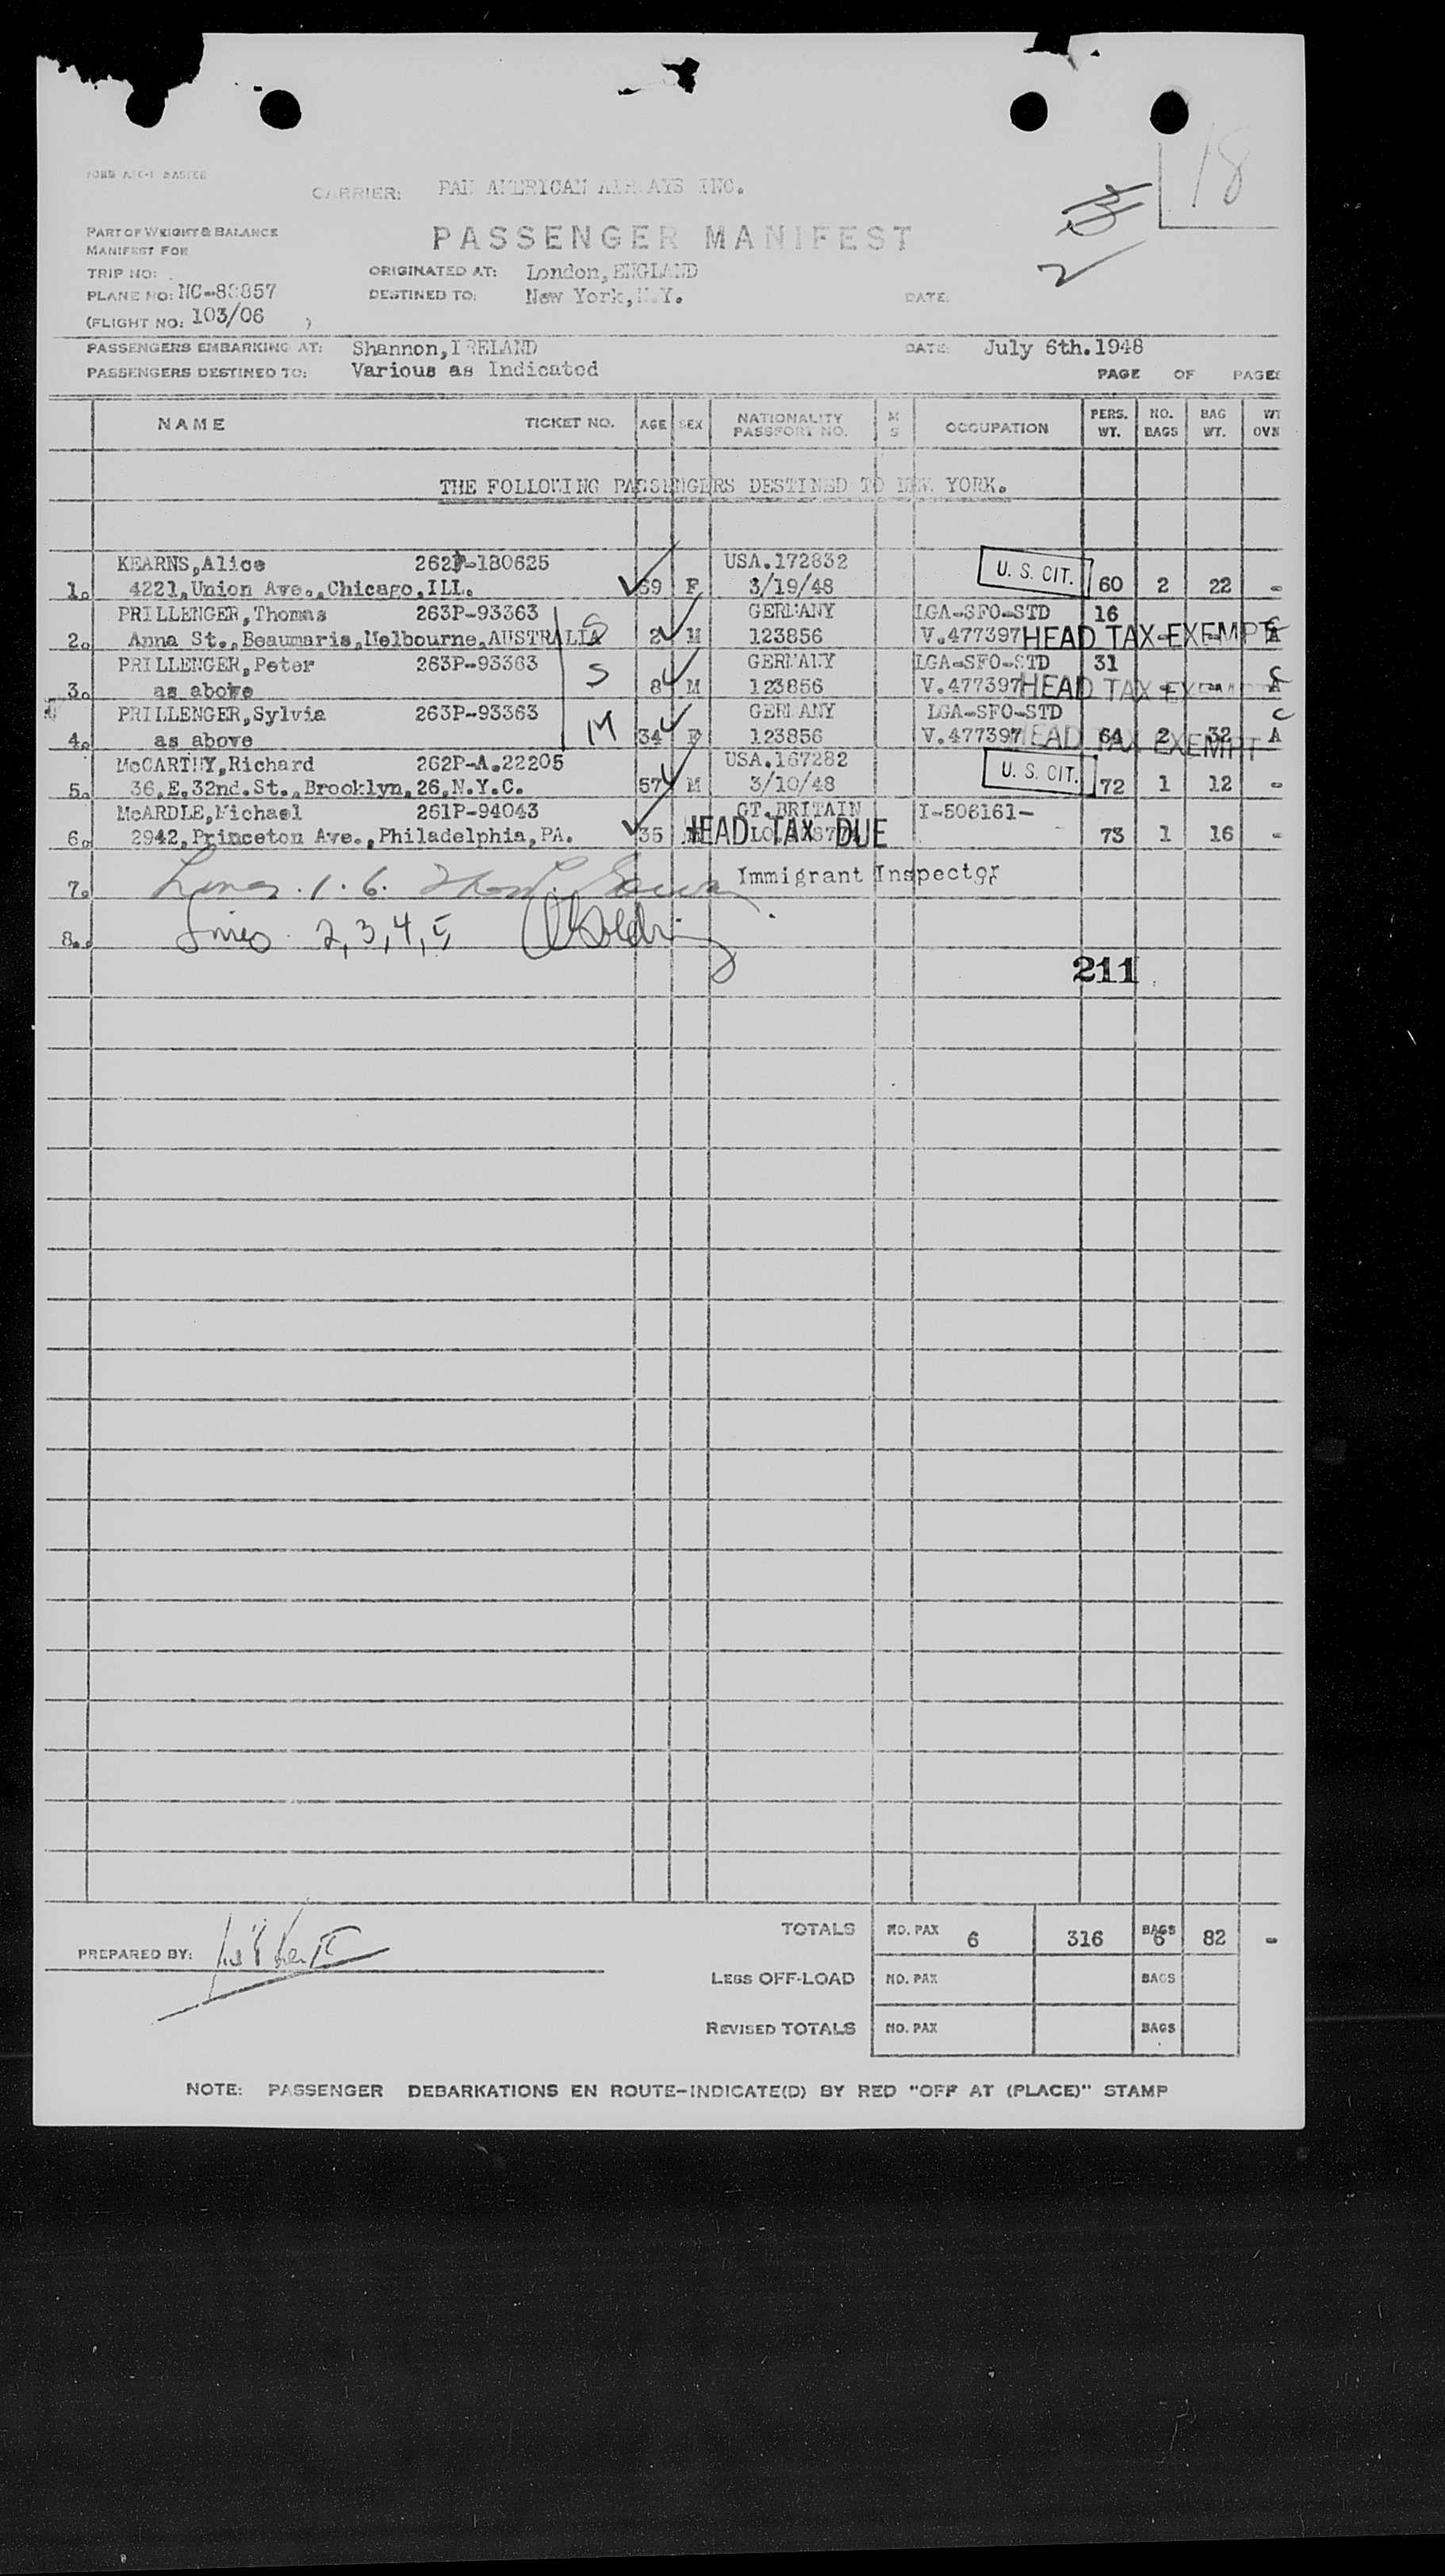 18
CARRIER: PAN AMERICAN AIRWAYS INC.
PART OF WEIGHT & BALANCE
MANIFEST FOR
PASSENGER MANIFEST
TRIP NO:
ORIGINATED AT: London, ENGLAND
PLANE NO: NC-88857
DESTINED TO: New York, N.Y.
DATE:
(FLIGHT NO: 103/06 )
PASSENGERS EMBARKING AT: Shannon, IRELAND DATE: July 6th.1948
PASSENGERS DESTINED TO: Various as Indicated
PAGE OF PAGE
NAME TICKET NO. AGE SEX NATIONALITY PASSPORT NO. M S OCCUPATION PERS. WT. NO. BAGS BAG WT. WT
THE FOLLOWING PASSENGERS DESTINED TO NEW YORK.
KEARNS,Alice 262P-180625 USA.172832 U. S. CIT.
1. 4221,Union Ave.,Chicago,ILL. F 3/19/48 60 2 22 -
PRILLENGER,Thomas 263P-93363 S GERMANY LGA-SFO-STD 16
2. Anna St.,Beaumaris,Melbourne,AUSTRALIA 2 M 123856 V.477397 HEAD TAX EXEMPT
PRILLENGER,Peter 263P-93363 S GERMANY LGA-SFO-STD 31 C
3. as above 8 M 123856 V.477397 HEAD TAX EXEMPT A
PRILLENGER,Sylvia 263P-93363 M GERMANY LGA-SFO-STD C
4. as above 34 F 123856 V.477397 HEAD TAX EXEMPT 64 2 32 A
McCARTHY,Richard 262P-A.22205 USA.167282 U. S. CIT.
5. 36,E.32nd.St.,Brooklyn,26,N.Y.C. 57 M 3/10/48 72 1 12 -
McARDLE,Michael 261P-94043 GT.BRITAIN I-506161-
6. 2942,Princeton Ave.,Philadelphia,PA. 35 HEAD TAX DUE 73 1 16 -
7. Lines. 1. 6. Immigrant Inspector
8. Lines 2,3,4,5
211
TOTALS NO. PAX 6 316 BAGS 6 82 -
PREPARED BY:
LESS OFF-LOAD NO. PAX BAGS
REVISED TOTALS NO. PAX BAGS
NOTE: PASSENGER DEBARKATIONS EN ROUTE-INDICATE(D) BY RED "OFF AT (PLACE)" STAMP